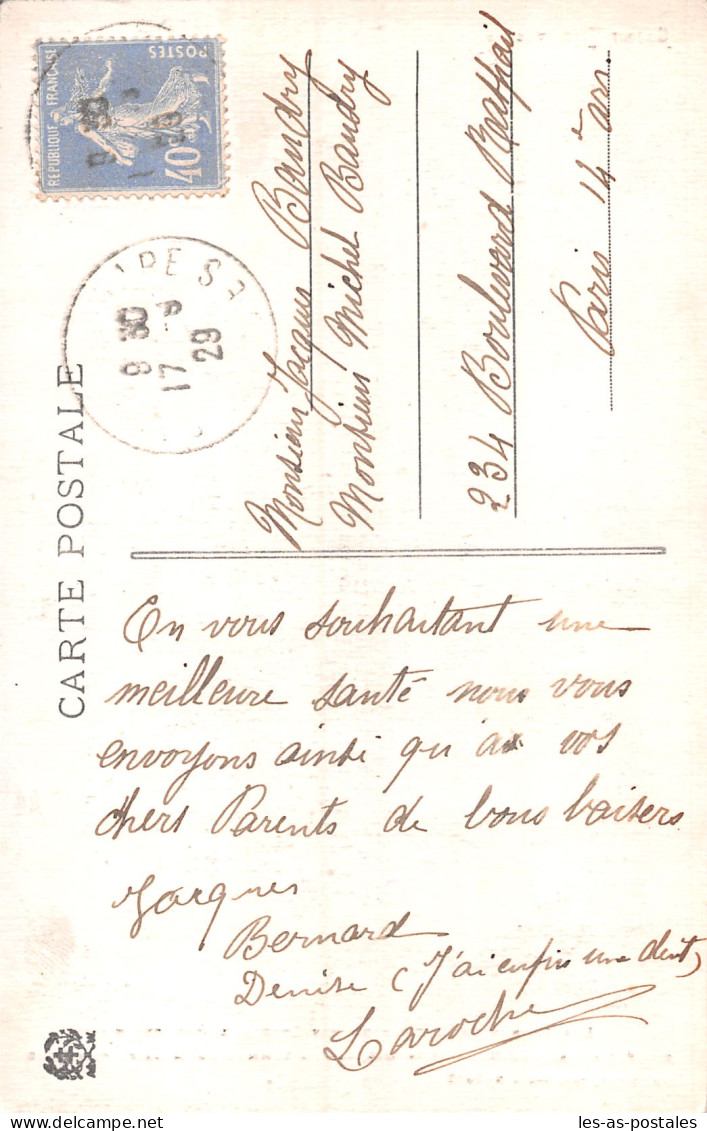 CARTE POSTALE
REPUBLIQUE FRANÇAISE
POSTES
40c
9 30
17 - 9
29
Monsieur Jacques Baudry
Monsieur Michel Baudry
234 Boulevard Raspail
Paris 14e arr.
En vous souhaitant une
meilleure santé nous vous
envoyons ainsi qu'à vos
chers Parents de bons baisers
Jacques
Bernard
Denise (J'ai enfin une dent)
Laroche
les-as-postales.com